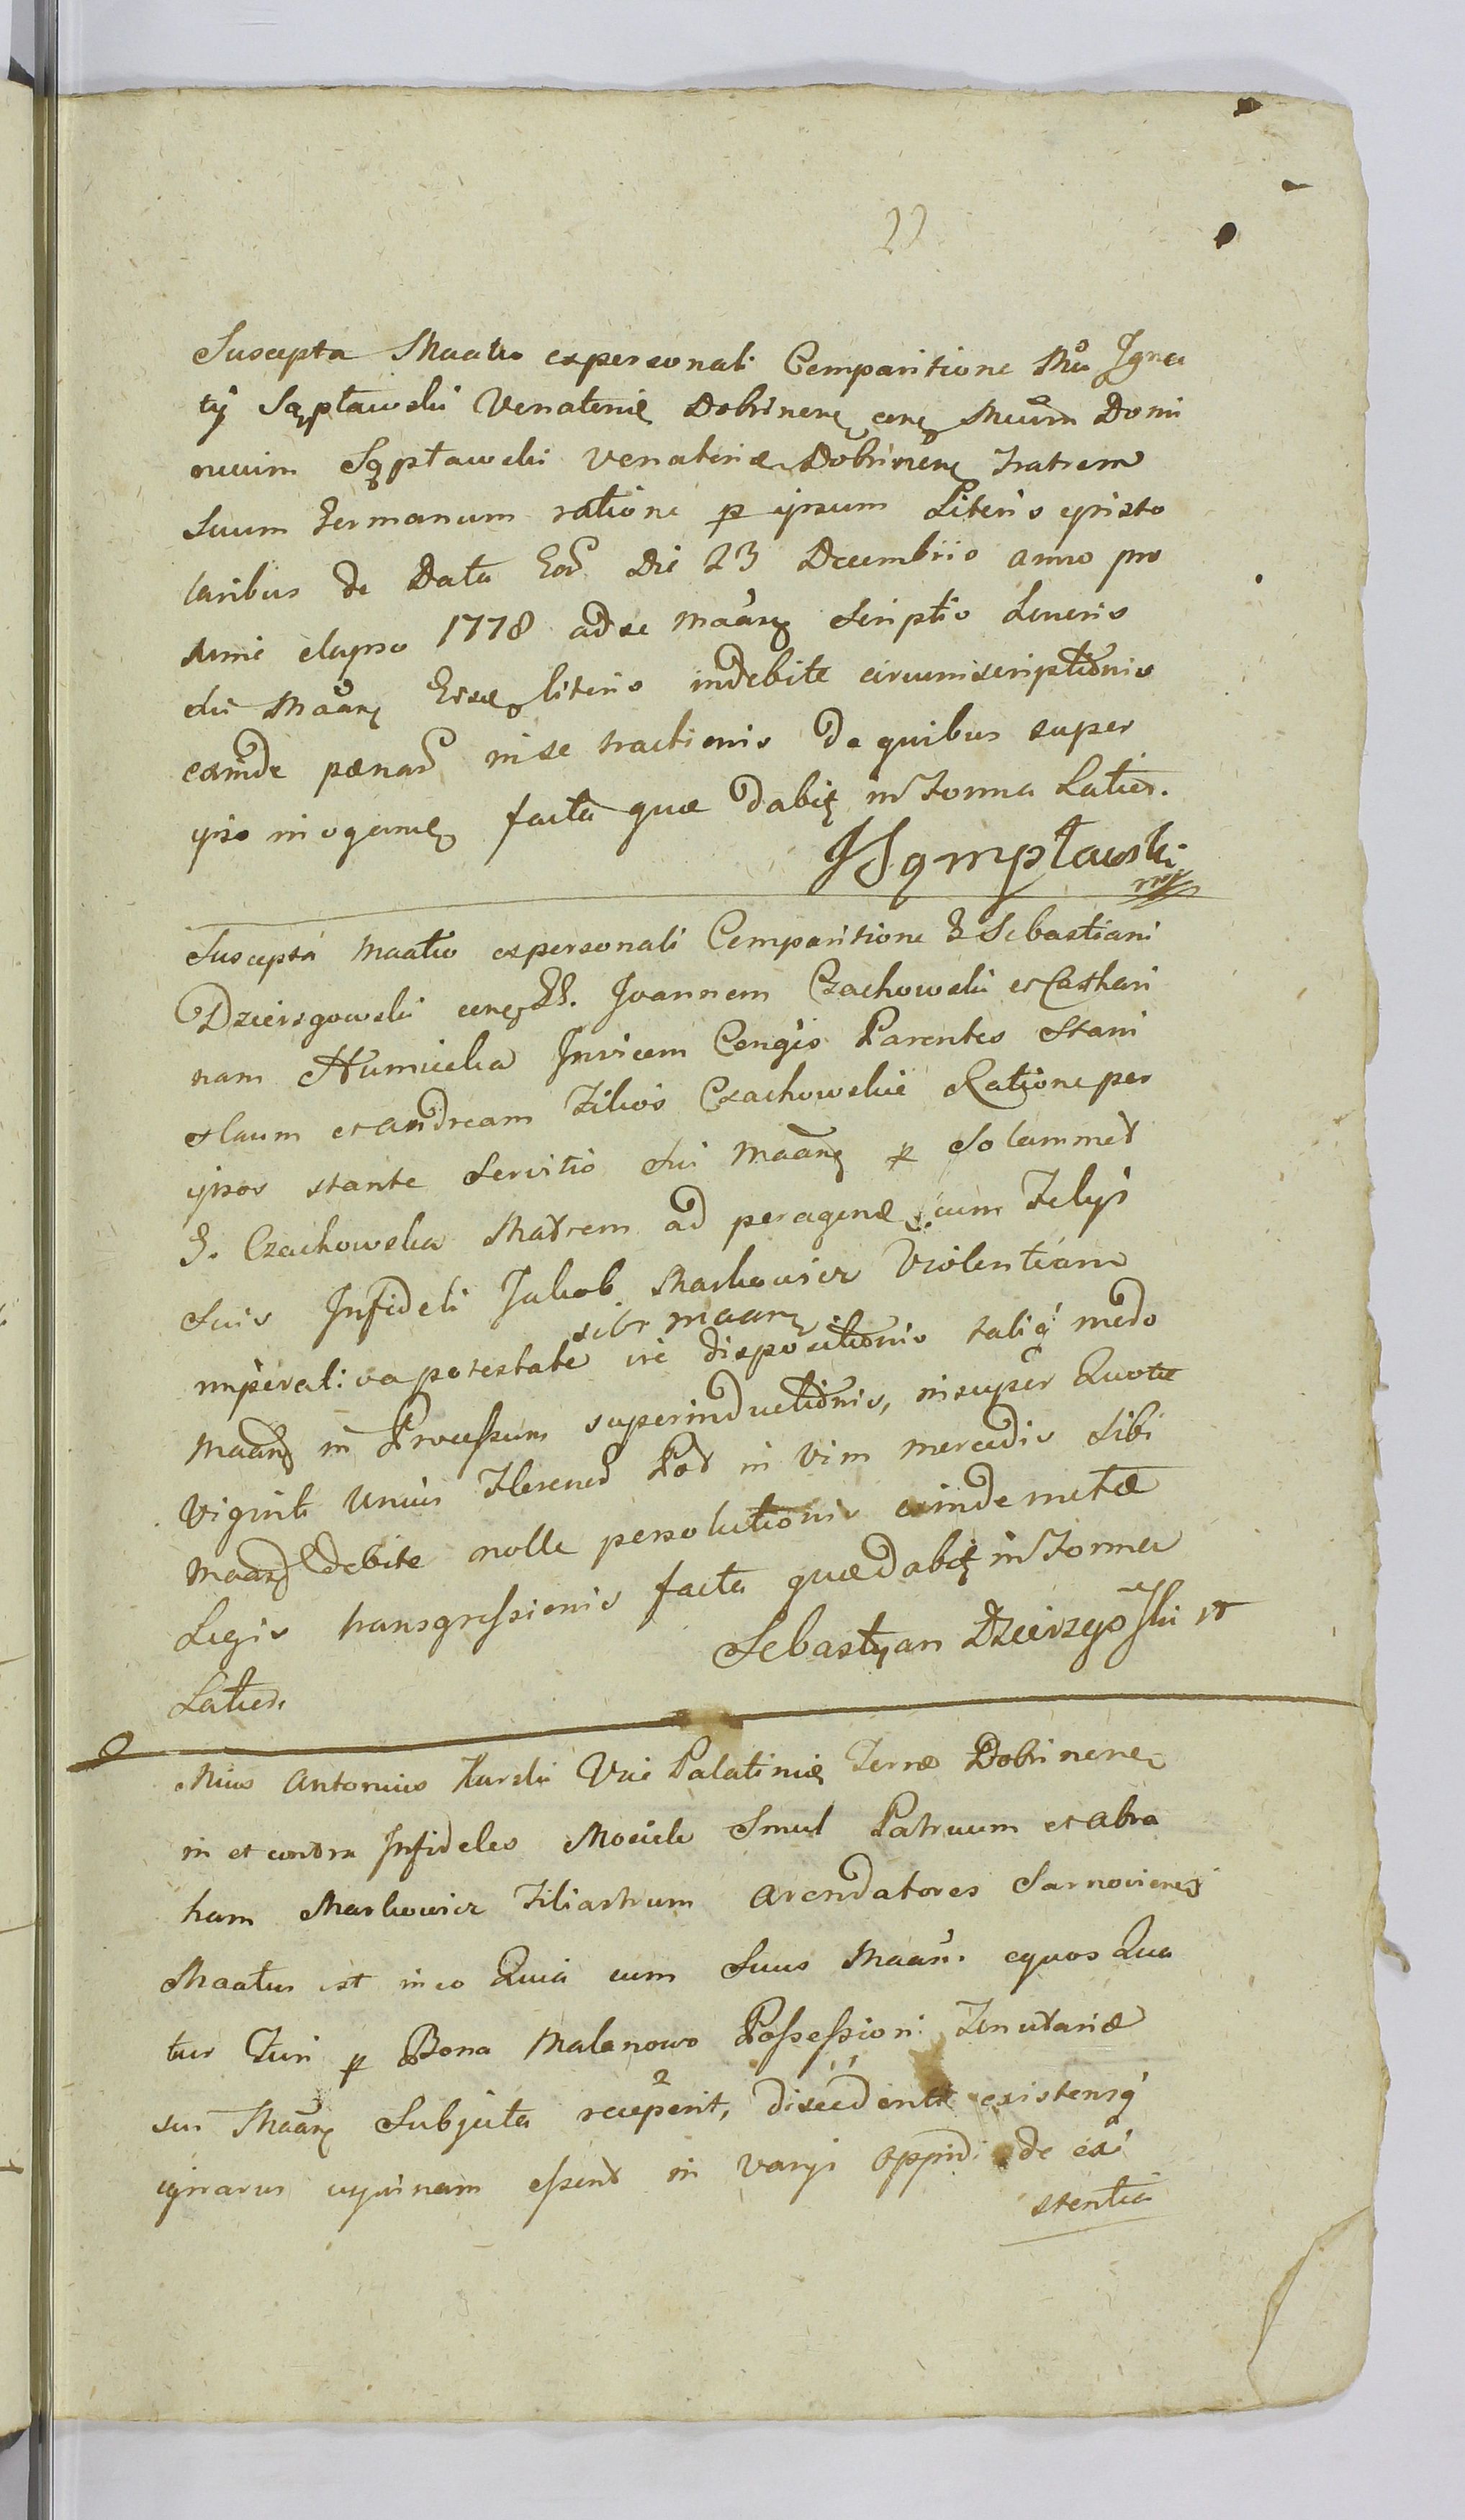 Suscepta Maatio expersonali Comparitione Mci Igna
tÿ Sąpławski Venatoriæ Dobrinenẹ conẹ Mcum Domi
nicum Sąpławski Venatoriæ Dobrinenẹ Fratrem
Suum Germanum ratione p ipsum Literis episto
laribus de Data Eoꝝ Die 23 Decembris anno pro
xime elapso 1778 ad se Maanẹ Scriptis Honoris
sui Maanẹ Eisẹ literis indebite circumscriptionis
exinde pœnaꝝ in se tractionis de quibus super
ipso in oganẹ facta quæ dabiẹ in Forma Latior.
JSąmpławski
Suscepta Maatio expersonali Comparitione G Sebastiani
Dzierzgowski conẹ GG. Joannem Czachowski et Cathari
nam Humiecka Invicem Congis Parentes Stani
slaum et andream Filios Czachowskie Ratione per
ipsos stante Servitio sui Maanẹ p Solammet
G. Czachowska Matrem ad peragenđ cum Filÿs
Suis Infideli Jakob Markowicz Violentiam
sibi Maanẹ
imperativa potestate uie dispositionis taliq́ modo
Maanẹ in Processum superinductionis, insuper Quota
Viginti Unius Floreneꝝ Pol in Vim mercedis Sibi
Maanẹ debite nolle persolutionis exinde metæ
Legis transgressionis facta quæ dabiẹ in Forma
Sebastyan Dzierzgoski
Latior.
Mcus Antonius Kurski Vice Palatiniẹ Terræ Dobrinenẹ
in et contra Infideles Mosiek Smul Patruum et Abra
ham Markowicz Filiastrum arendatores Sarnoviensẹ
Maatus est in eo Quia cum Suus Maan. equos Qua
tuor Furi p Bona Malanowo Possessioni Tenutariæ
sui Maanẹ Subjecta receperit, discedente existensq́
ignarus cujusnam essent in varÿs oppidis de exi
stentia